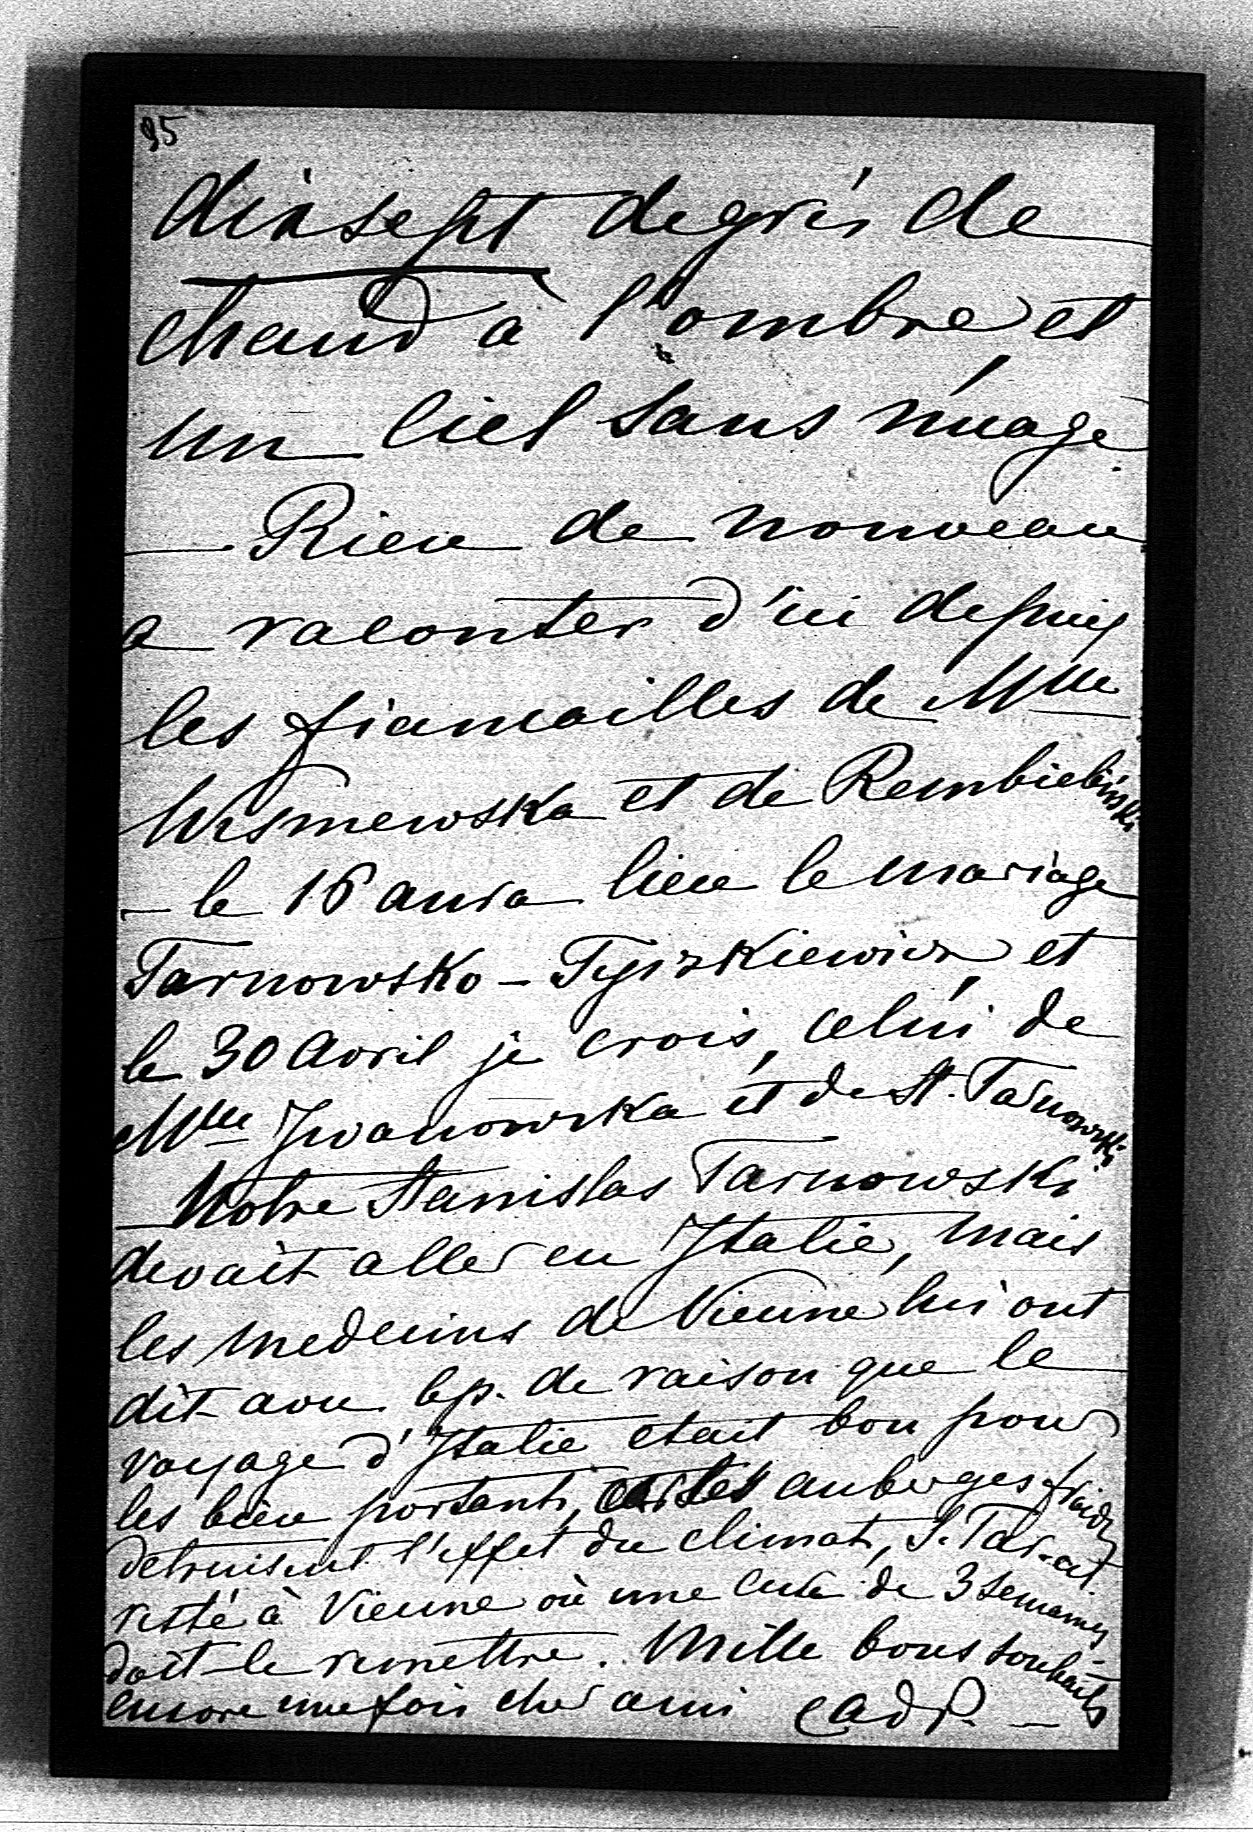 95
dixsept degrés de
chaud à l'ombre et
un ciel sans nuage.
— Rien de nouveau
a raconter d'ici depuis
les fiancailles de Mlle
Wismewska et de Rembielinski
— le 16 aura lieu le mariage
Tarnowsko - Tyszkiewicz et
le 30 Avril je crois, celui de
Mlle Iwanowska et de St. Tarnowski
— Notre Stanislas Tarnowski
devait aller en Italie, mais
les medecins de Vienne lui ont
dit avec bp. de raison que le
voyage d'Italie etait bon pour
les bien portants, car les auberges froides
detruisent l'effet du climat, S. Tar. est
resté à Vienne où une cure de 3 semaines
doit le remettre. Mille bons souhaits
encore une fois cher ami